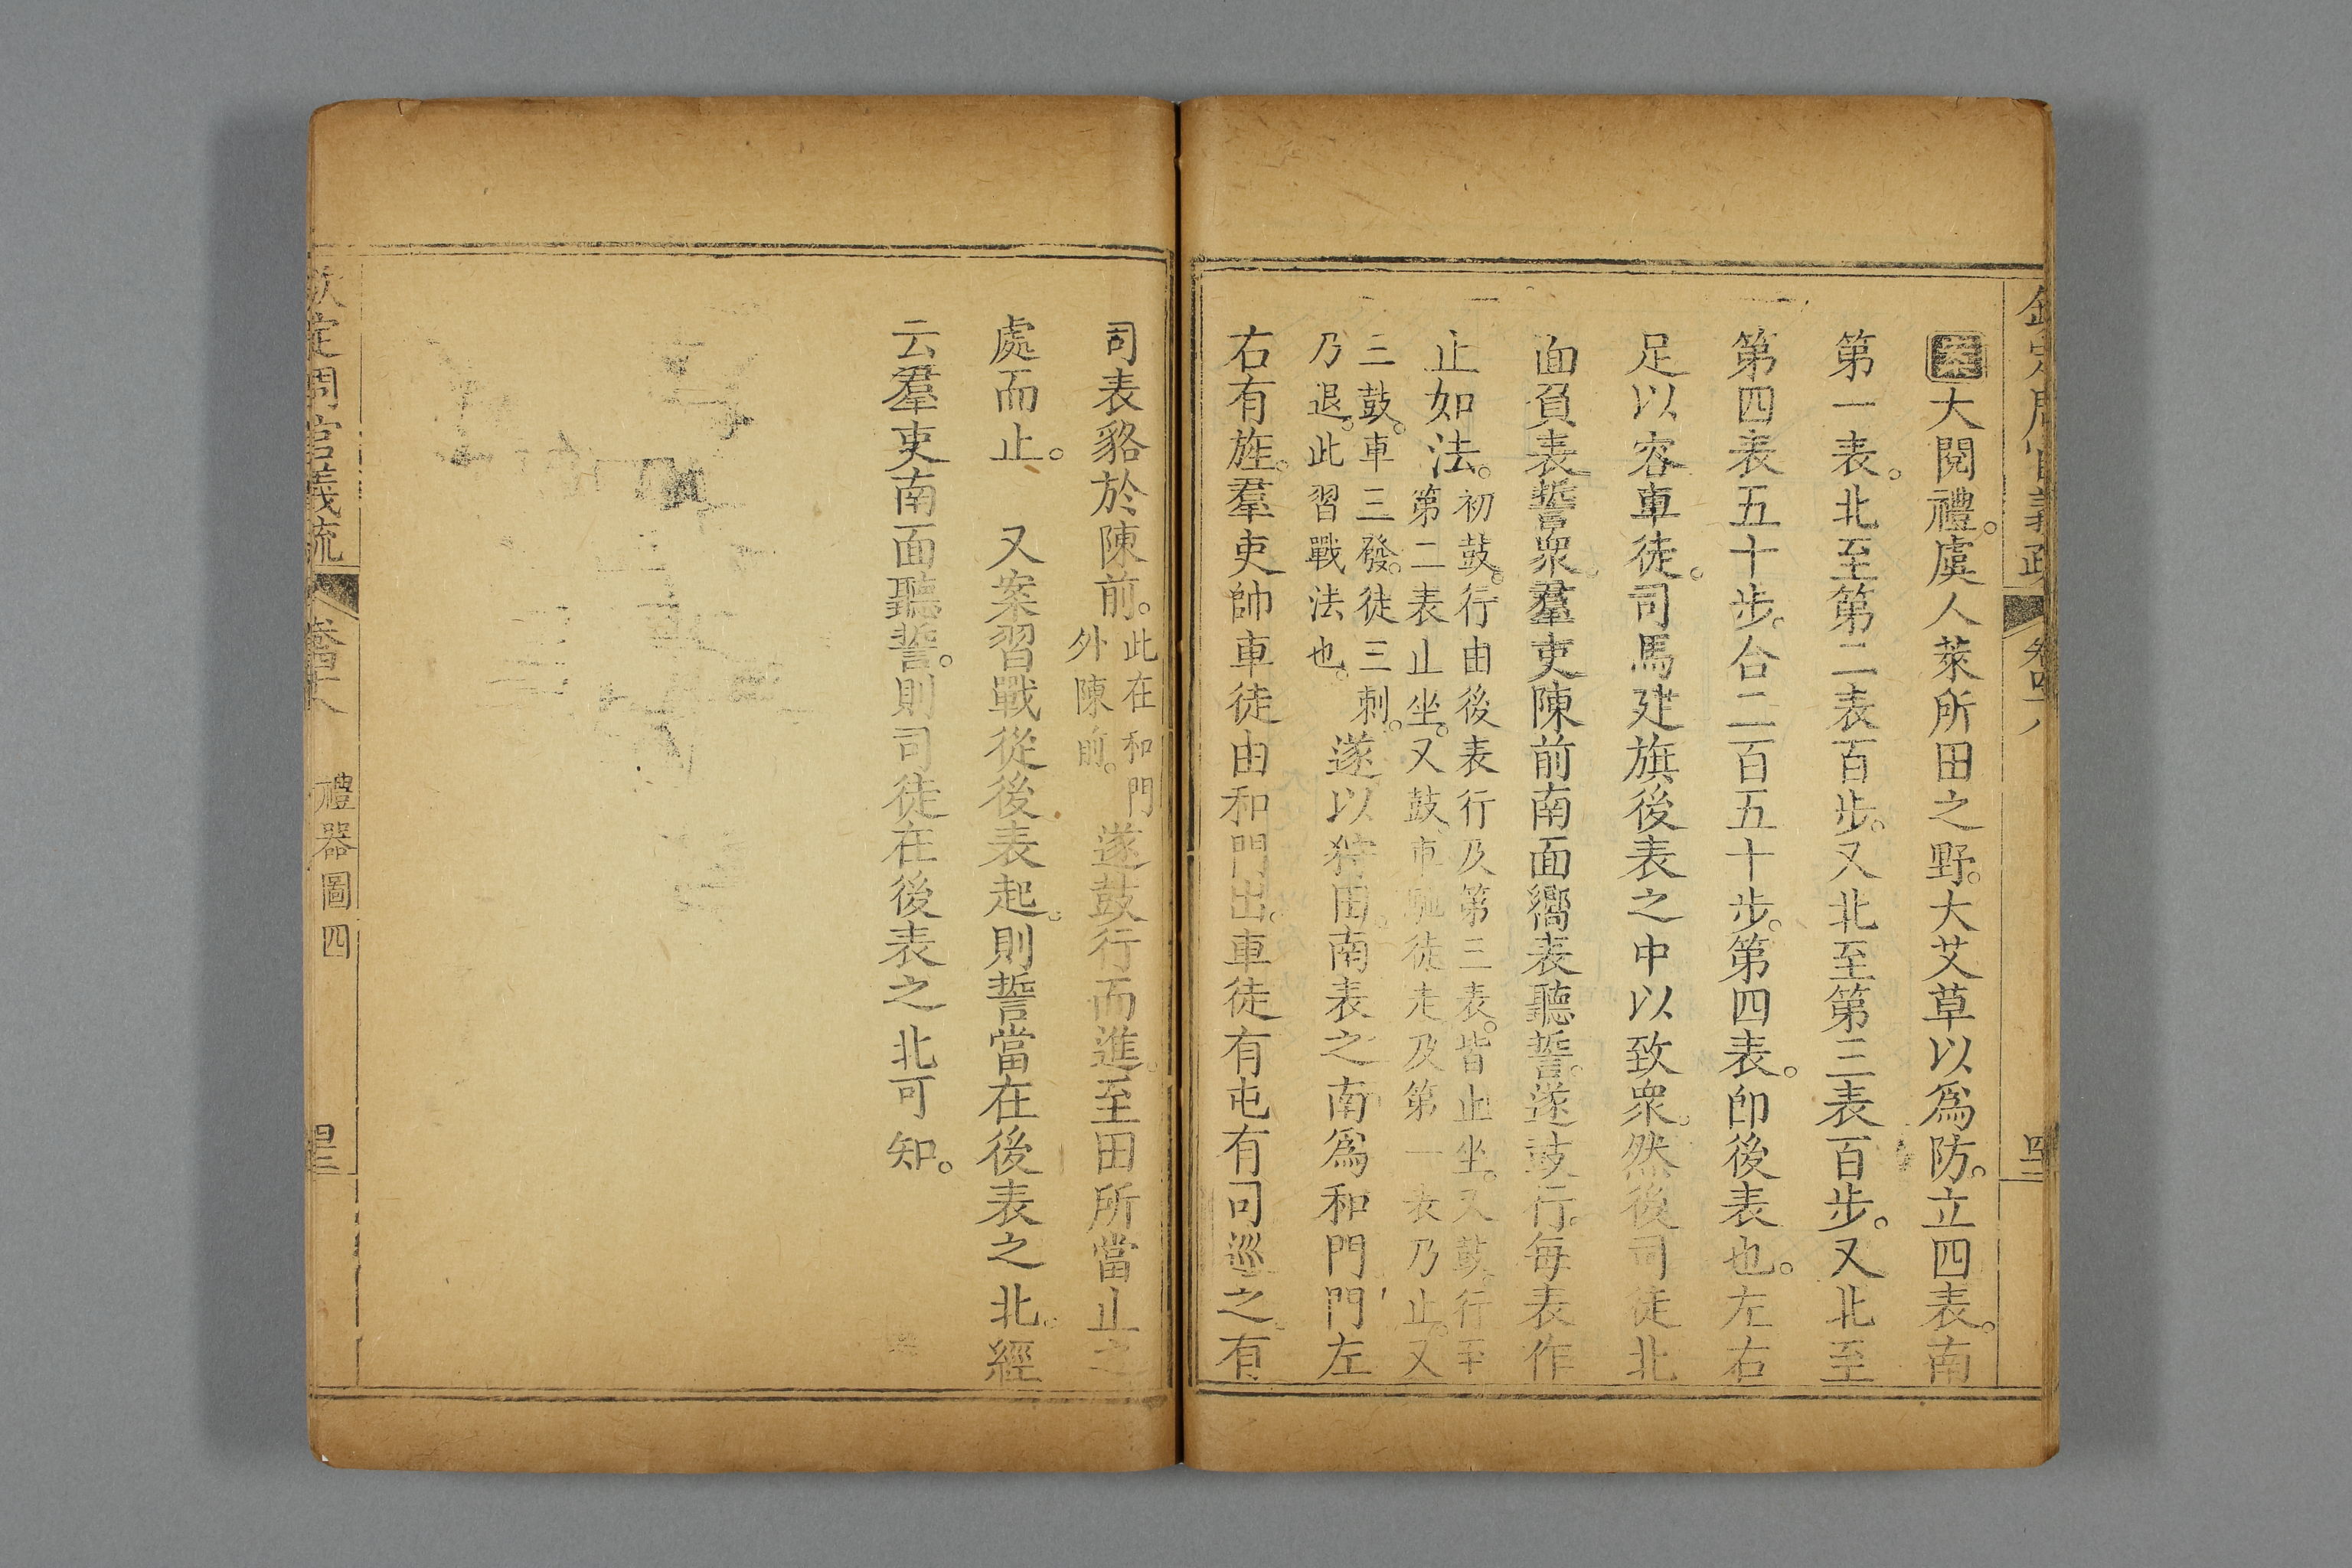 欽定周官義疏 卷四十八
大閱禮。虞人萊所田之野。大艾草以爲防。立四表。南
第一表。北至第二表百步。又北至第三表百步。又北至
第四表五十步。合二百五十步。第四表。卽後表也。左右
足以容車徒。司馬建旗後表之中以致衆。然後司徒北
面負表誓衆。羣吏陳前南面嚮表聽誓。遂鼓行。每表作
止如法。初鼓。行由後表行及第三表。皆止坐。又鼓。行至
第二表止坐。又鼓。車馳徒走及第一表乃止。又
三鼓。車三發。徒三刺。
乃退。此習戰法也。
遂以狩田。南表之南爲和門門左
右有旌。羣吏帥車徒由和門出。車徒有屯有司巡之有
司表貉於陳前。此在和門
外陳前。
遂鼓行而進。至田所當止之
處而止。 又案習戰從後表起。則誓當在後表之北。經
云羣吏南面聽誓。則司徒在後表之北可知。
欽定周官義疏 卷四十八 禮器圖四